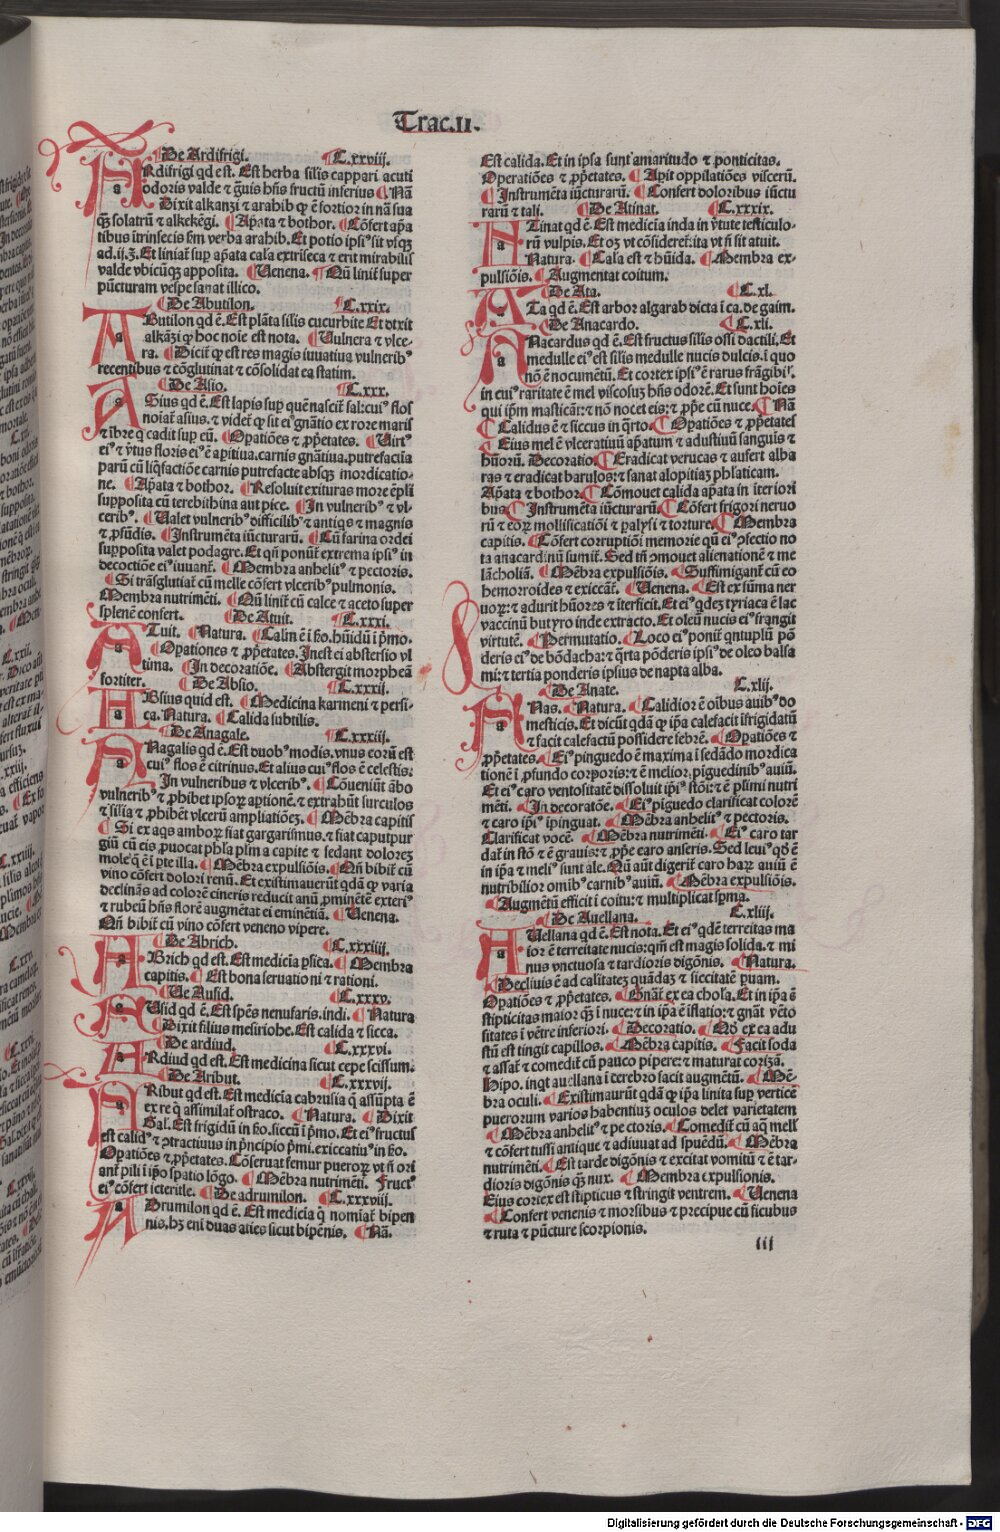 Trac.II.
De Ardifrigi. C.xxviij.
ARdifrigi qd est. Est herba silis cappari acuti
odoris valde ⁊ g̃uis hñs fructũ inferius Nã
Dixit alkanzi ⁊ arabib qꝫ ē fortior in nã sua
qꝫ solatrũ ⁊ alkekēgi. Apata ⁊ bothor. Cõfert apa
tibus ītrinsecis fm verba arabib. Et potio ipsiꝰ sit vsqꝫ
ad.ij.ʒ. Et liniat̃ sup apata cala extriseca ⁊ erit mirabilis
valde vbicũqꝫ apposita. Venena. Qñ linit̃ super
pũcturam vespe sanat illico.
De Abutilon. C.xxix.
AButilon qd ē. Est plãta silis cucurbite Et dixit
alkãzi ꝙ hoc noīe est nota. Vulnera ⁊ vlce-
ra. Dicit̃ ꝙ est res magis iuuatiua vulneribꝰ
recentibus ⁊ cõglutinat ⁊ cõsolidat ea statim.
De Asio. C.xxx.
ASius qd ē. Est lapis sup quē nascit̃ sal: cuiꝰ flos
noiat̃ asius. ⁊ videt̃ ꝙ sit eiꝰ gnãtio ex rore maris
⁊ ībre q̃ cadit sup eũ. Opatiões ⁊ ꝓpetates. Virtꝰ
eiꝰ ⁊ ṽtus floris eiꝰ ē apitiua. carnis gnãtiua. putrefactīa
parũ cũ liq̃factiõe carnis putrefacte absqꝫ mordicatio-
ne. Apata ⁊ bothor. Resoluit exituras more epli
supposita cũ terebithina aut pice. In vulneribꝰ ⁊ vl-
ceribꝰ. Ualet vulneribꝰ difficilibꝰ ⁊ antiqs ⁊ magnis
⁊ ꝓfũdis. Instrumēta iũcturarũ. Cũ farina ordei
supposita valet podagre. Et qñ ponũt̃ extrema ipsiꝰ in
decoctiõe eiꝰ iuuant̃. Membra anhelitꝰ ⁊ pectoris.
Si trãsglutiat̃ cũ melle cõfert vlceribꝰ pulmonis.
Membra nutrimēti. Qñ linit̃ cũ calce ⁊ aceto super
splenē confert. De Atuit. C.xxxi.
ATuit. Natura. Calm ē i ko. hũidũ i p̃mo.
Opationes ⁊ ꝓpetates. Inest ei abstersio vl
tima. In decoratiõe. Abstergit morpheã
fortiter. De Absio. C.xxxij.
ABsius quid est. Medicina karmeni ⁊ persi-
ca. Natura. Calida subtilis.
De Anagale. C.xxxiij.
ANagalis qd ē. Est duobꝰ modis. vnus eorũ est
cuiꝰ flos ē citrinus. Et alius cuiꝰ flos ē celestis.
In vulneribus ⁊ vlceribꝰ. Cõueniũt ãbo
vulneribꝰ ⁊ ꝓhibet ipsoꝝ aptionē. ⁊ extrahũt surculos
⁊ silia ⁊ ꝓhibēt vlcerũ ampliatiõeꝫ. Mēbra capitis
Si ex aqs amboꝝ fiat gargarismus. ⁊ fiat caputpur
giũ cũ eis ꝓuocat phla plm a capite ⁊ sedant doloreꝫ
moleꝰ q̃ ē i pte illa. Mēbra expulsiõis. Qñ bibit̃ cũ
vino cõfert dolori renũ. Et existimauerũt qdã ꝙ varia
declinãs ad colorē cineris reducit anũ ꝓminētē exteriꝰ
⁊ rubeũ hñs florē augmētat ei eminētiã. Venena.
Qñ bibit̃ cũ vino cõfert veneno vipere.
De Abrich. C.xxxiiij.
ABrich qd est. Est medicīa psica. Membra
capitis. Est bona seruationi ⁊ rationi.
De Ausid. C.xxxv.
AUsid qd ē. Est spēs nenufaris. indi. Natura
Dixit filius mesiriohe. Est calida ⁊ sicca.
De ardiud. C.xxxvi.
ARdiud qd est. Est medicina sicut cepe scissum.
De Aribut. C.xxxvij.
ARibut qd est. Est medicīa cabrusia q̃ assũpta ē
ex re q̃ assimilat̃ ostraco. Natura. Dixit
Gal. Est frigidũ in ko. siccũ i p̃mo. Et eiꝰ fructus
est calidꝰ ⁊ ↄtractiuus in pncipio pmi. exiccatiuꝰ in ko.
Opatiões ⁊ ꝓpetates. Cõseruat femur pueroꝝ vt ñ ori
ant̃ pili i ipso spatio lõgo. Mēbra nutrimēti. Fructꝰ
eiꝰ cõfert ictericie. De adrumilon. C.xxxviij.
ADrumilon qd ē. Est medicīa q̃ nomiat̃ bipen
nis. hꝫ eni duas aties sicut bipēnis. Nã.
Est calida. Et in ipsa sunt amaritudo ⁊ ponticitas.
Operatiões ⁊ ꝓpetates. Apit oppilatiões viscerũ.
Instrumēta iũcturarũ. Confert doloribus iũctu
rarũ ⁊ tali. De Atinat. C.xxxix.
ATinat qd ē. Est medicīa inda in ṽtute testiculo-
rũ vulpis. Et oꝫ vt cõsideret̃: ita vt ñ sit atuit.
Natura. Cala est ⁊ hũida. Membra ex-
pulsiõis. Augmentat coitum.
De Ata. C.xl.
ATa qd ē. Est arbor algarab dicta i ca. de gaim.
De Anacardo. C.xli.
ANacardus qd ē. Est fructus silis ossi dactili. Et
medulle eiꝰ est silis medulle nucis dulcis. i quo
nõ ē nocumētũ. Et cortex ipsiꝰ ē rarus frãgibiꝰ.
in cuiꝰ raritate ē mel viscosuꝫ hñs odorē. Et sunt hoīes
qui ipm masticãt: ⁊ nõ nocet eis: ⁊ ꝓpe cũ nuce. Nã
Calidus ē ⁊ siccus in q̃rto. Opatiões ⁊ ꝓpetates
Eius mel ē vlceratiuũ apatum ⁊ adustiuũ sanguīs ⁊
hũorũ. Decoratio. Eradicat verucas ⁊ aufert alba
ras ⁊ eradicat barulos: ⁊ sanat alopitiaꝫ phlaticam.
Apata ⁊ bothor. Cõmouet calida apata in īteriori
bus. Instrumēta iũcturarũ. Cõfert frigori neruo
rũ ⁊ eoꝝ mollificatiõi ⁊ palysi ⁊ torture. Membra
capitis. Cõfert corruptiõi memorie qũ eiꝰ ↄfectio no
ta anacardinũ sumit̃. Sed tñ ↄmouet alienationē ⁊ me
lãcholiã. Mēbra expulsiõis. Suffimigant̃ cũ eo
hemorroides ⁊ exiccãt̃. Venena. Est ex sũma ner
uoꝝ: ⁊ adurit hũores ⁊ īterficit. Et eiꝰ qdeꝫ tyriaca ē lac
vaccinũ butyro inde extracto. Et oleũ nucis eiꝰ frangit
virtutē. Permutatio. Loco eiꝰ ponit̃ qntuplũ põ
deris eiꝰ de bõdacha: ⁊ q̃rta põderis ipsiꝰ de oleo balsa
mi: ⁊ tertia ponderis ipsius de napta alba.
De Anate. C.xlij.
ANas. Natura. Calidior ē oibus auibꝰ do
mesticis. Et dicũt qdã ꝙ ipa calefacit īfrigidatũ
⁊ facit calefactũ possidere febrē. Opatiões ⁊
ꝓpetates. Eiꝰ pinguedo ē maxima i sedãdo mordica
tionē i ꝓfundo corporis: ⁊ ē melior piguedinibꝰ auiũ.
Et eiꝰ caro ventositatē dissoluit ipiꝰ stõi: ⁊ ē plimi nutri
mēti. In decoratõe. Eiꝰ piguedo clarificat colorē
⁊ caro ipiꝰ ipinguat. Mēbra anhelitꝰ ⁊ pectoris.
Clarificat vocē. Mēbra nutrimēti. Eiꝰ caro tar
dat̃ in stõ ⁊ ē grauis: ⁊ ꝓpe caro anseris. Sed leuiꝰ qõ ē
in ipa ⁊ meliꝰ sunt ale. Qũ aũt digerit̃ caro haꝝ auiũ ē
nutribilior omibꝰ carnibꝰ auiũ. Mēbra expulsiõis.
Augmētũ efficit i coitu: ⁊ multiplicat spma.
De Auellana. C.xliij.
AUellana qd ē. Est nota. Et eiꝰ qdē terreitas ma
ior ē terreitate nucis: qm̃ est magis solida. ⁊ mi
nus vnctuosa ⁊ tardioris digõnis. Natura.
Decliuis ē ad calitateꝫ quãdaꝫ ⁊ siccitatē puam.
Opatiões ⁊ ꝓpetates. Gnãt̃ ex ea chola. Et in ipa ē
stipticitas maior qꝫ i nuce: ⁊ in ipa ē īflatio: ⁊ gnãt vēto
sitates i vētre inferiori. Decoratio. Qõ ex ea adu
stũ est tingit capillos. Mēbra capitis. Facit soda
⁊ assat̃ ⁊ comedit̃ cũ pauco pipere: ⁊ maturat corizã.
Hipo. inqt auellana i cerebro facit augmētũ. Mē-
bra oculi. Existimaurũt qdã ꝙ ipa linita sup verticē
puerorum varios habentiuꝫ oculos delet varietatem
Mēbra anhelitꝰ ⁊ pectoris. Comedit̃ cũ aq̃ mell̃
⁊ cõfert tussi antique ⁊ adiuuat ad spuēdũ. Mēbra
nutrimēti. Est tarde digõnis ⁊ excitat vomitũ ⁊ ē tar-
dioris digõnis qꝫ nux. Membra expulsionis.
Eius cortex est stipticus ⁊ stringit ventrem. Venena
Confert venenis ⁊ morsibus ⁊ precipue cũ ficubus
⁊ ruta ⁊ pũcture scorpionis.
iii
Digitalisierung gefördert durch die Deutsche Forschungsgemeinschaft - DFG